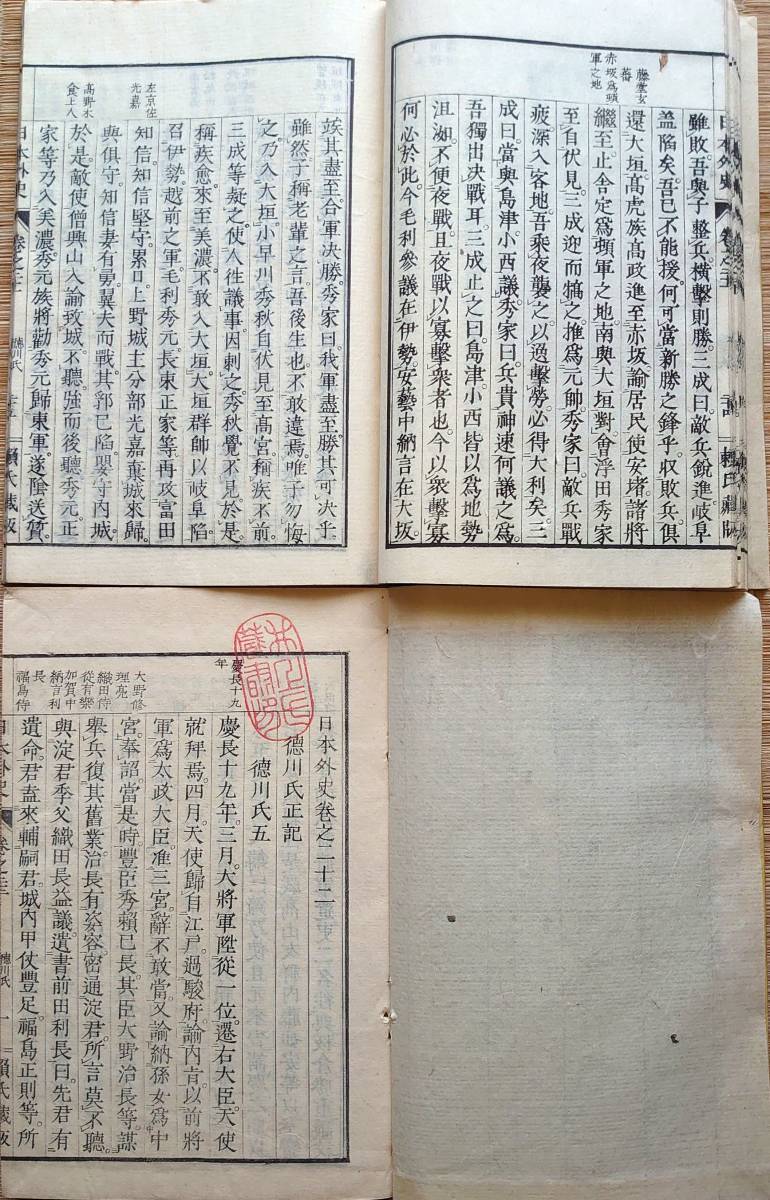 藤堂玄
蕃
赤坂為頓
軍之地
雖敗吾與子整兵橫擊則勝三成曰敵兵銳進岐阜
蓋陷矣吾已不能援何可當新勝之鋒乎収敗兵俱
還大垣高虎族高政進至赤坂諭居民使安堵諸將
繼至止舍定為頓軍之地南與大垣對會浮田秀家
至自伏見三成迎而犒之推為元帥秀家曰敵兵戰
疲深入客地吾乘夜襲之以逸擊勞必得大利矣三
成曰當與島津小西議秀家曰兵貴神速何議之為
吾獨出決戰耳三成止之曰島津小西皆以為地勢
沮洳不便夜戰且夜戰以寡擊衆者也今以衆擊寡
何必於此今毛利參議在伊勢安藝中納言在大坂
日本外史
竢其盡至合軍決勝秀家曰我軍盡至勝其可決乎
雖然子稱老輩之言吾後生也不敢違焉唯子勿悔
之乃入大垣小早川秀秋自伏見至高宮稱疾不前
三成等疑之使人往議事因刺之秀秋覺不見於是
稱疾愈來至美濃不敢入大垣大垣群帥以岐阜陷
召伊勢越前之軍毛利秀元長束正家等再攻富田
知信知信堅守累日上野城主分部光嘉棄城來歸
與俱守知信妻有勇翼夫而戰其郛已陷嬰守内城
於是敵使僧興山入諭致城不聽強而後聽秀元正
家等乃入美濃秀元族將勸秀元歸東軍遂陰送質
左京佐
光嘉
高野木
食上人
日本外史
德川氏
賴氏藏版
日本外史卷之二十二
德川氏正記
德川氏五
慶長十九
年
慶長十九年三月大將軍陞從一位遷右大臣天使
就拜焉四月天使歸自江戸過駿府諭内旨以前將
軍為太政大臣准三宮辭不敢當又諭納孫女為中
宮奉詔當是時豐臣秀賴已長其臣大野治長等謀
舉兵復其舊業治長有姿容密通淀君所言莫不聽
與淀君季父織田長益議遺書前田利長曰先君有
遺命君盍來輔嗣君城内甲仗豐足福島正則等所
大野修
理亮
織田侍
從有樂
加賀中
納言利
長
福島侍
日本外史
德川氏
一
賴氏藏版